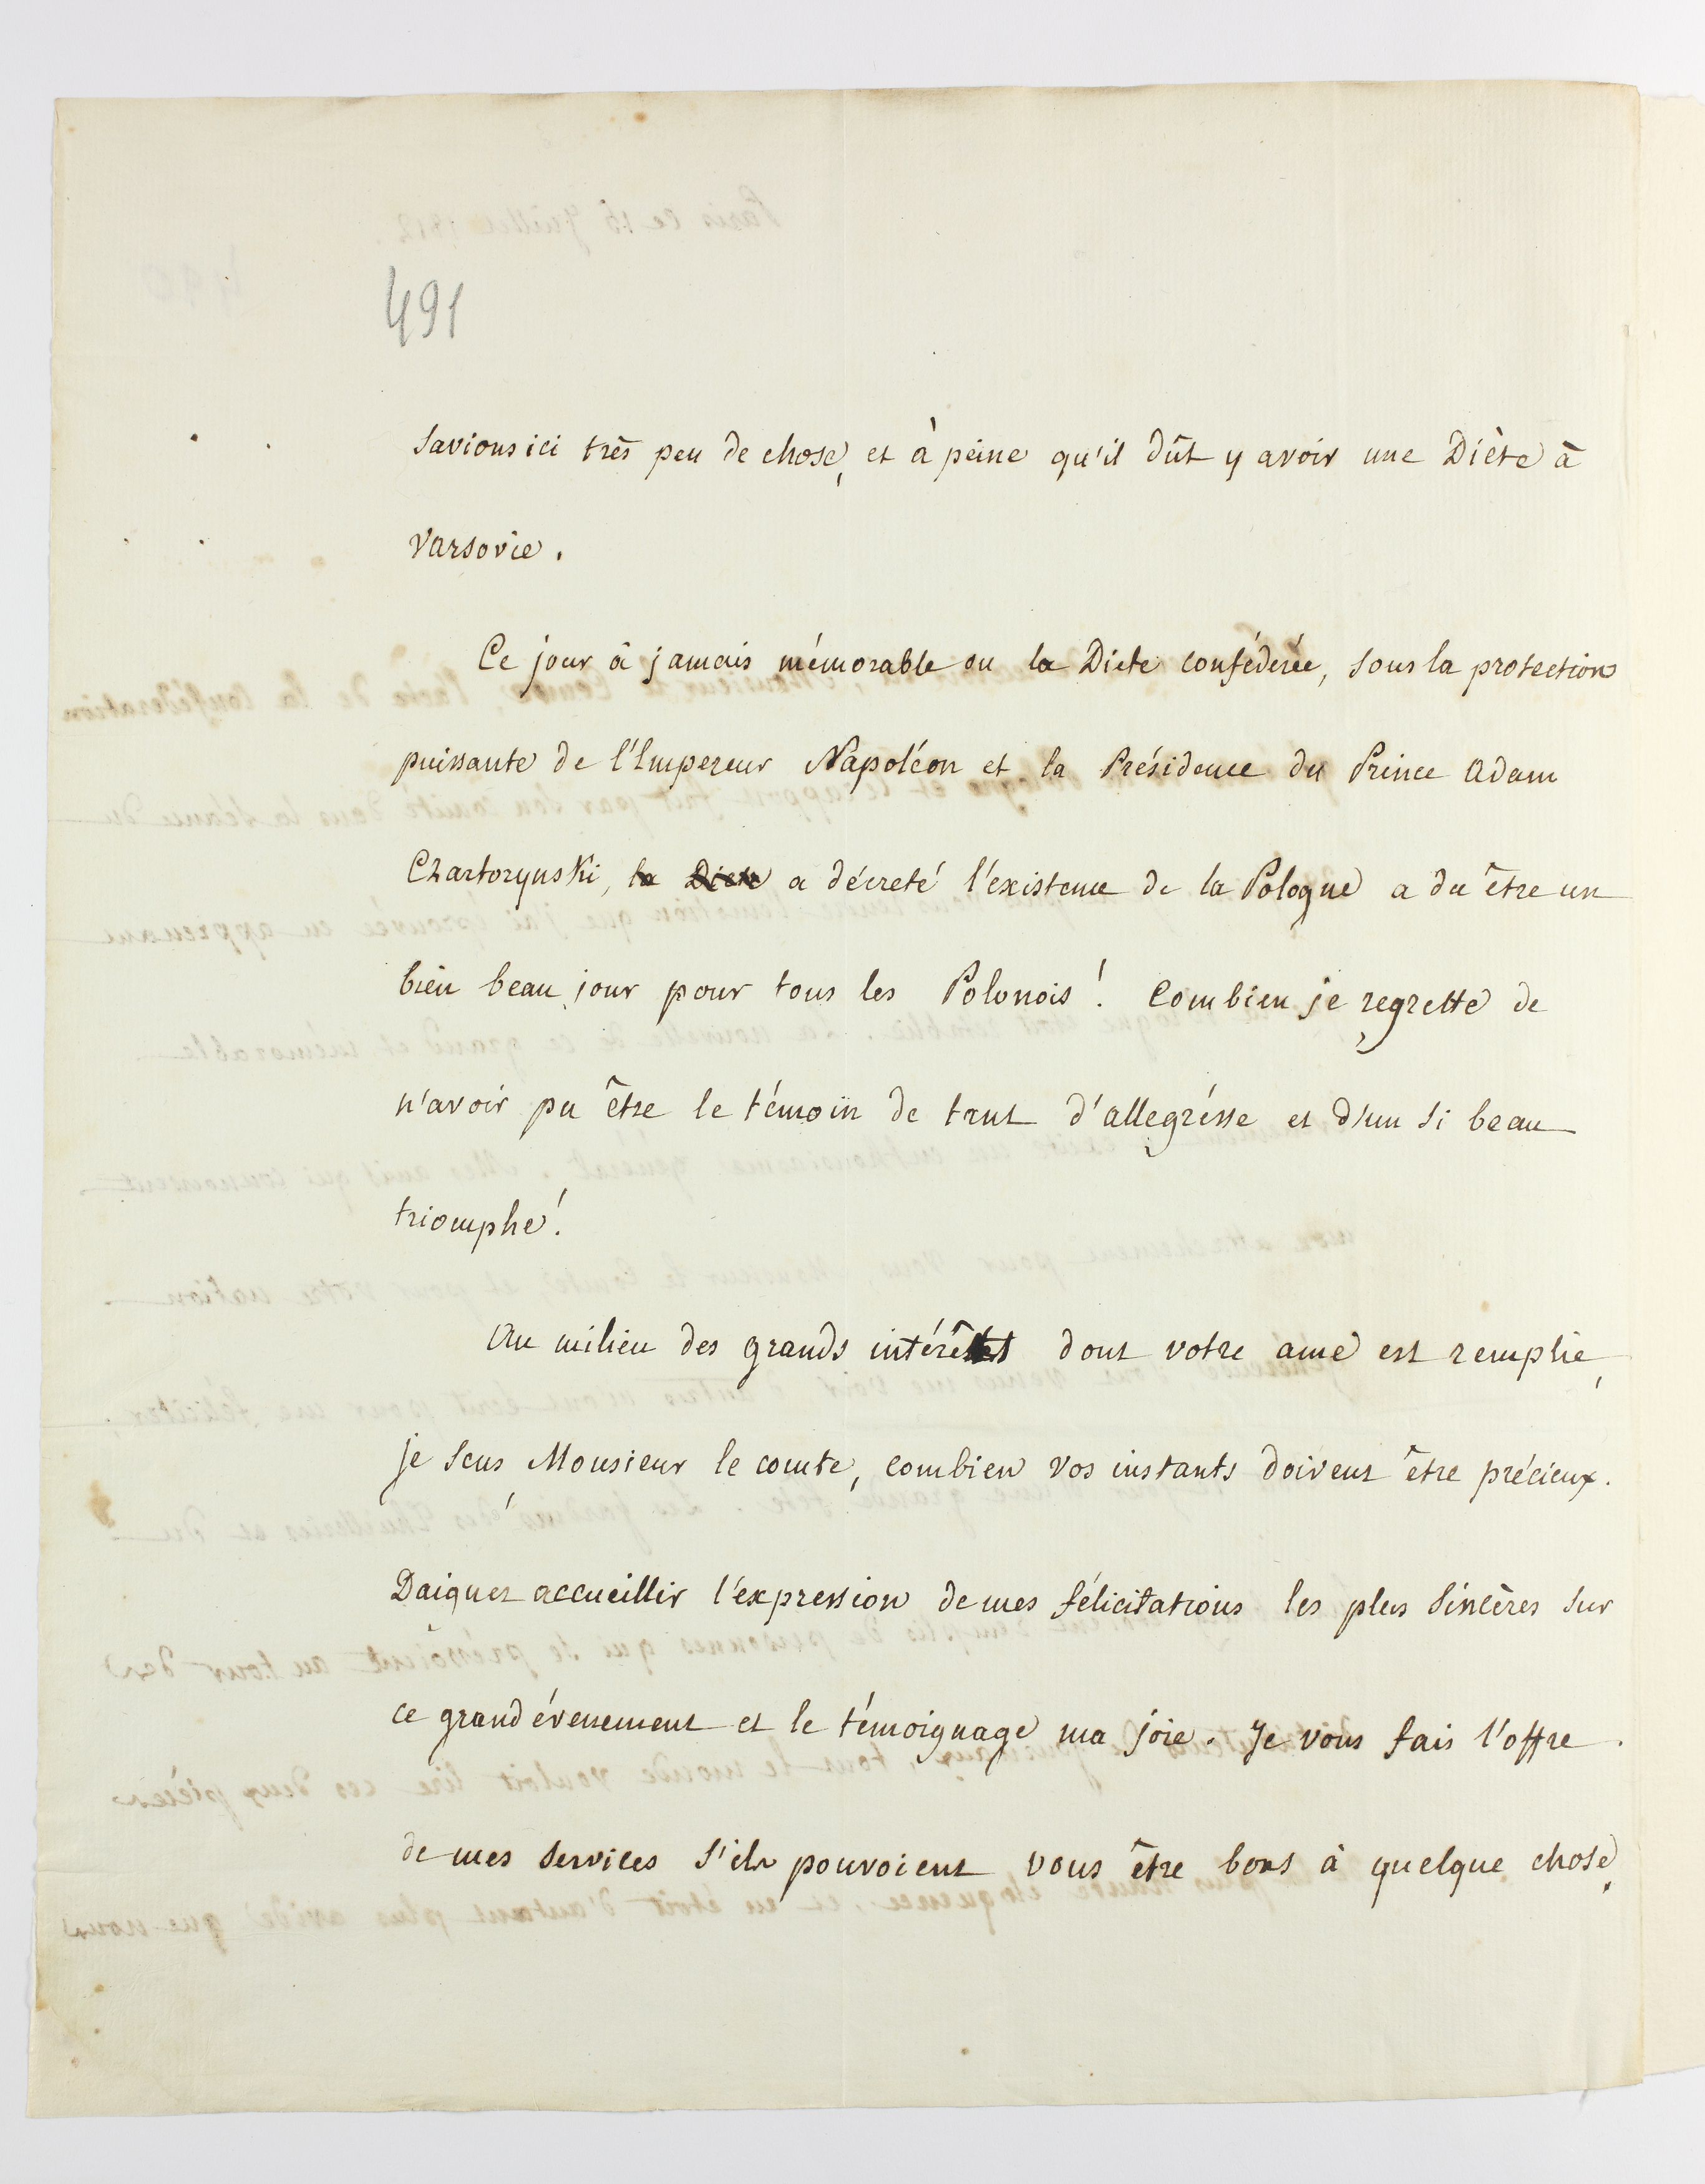 491
savions ici très peu de chose, et à peine qu'il dût y avoir une Diète à
varsovie.
Ce jour à jamais mémorable ou la Diete confédérée, sous la protection
puissante de l'Empereur Napoléon et la Présidence du Prince Adam
Czartorynski, la Diete a décreté l'existence de la Pologne a du être un
bien beau jour pour tous les Polonois! Combien je regrette de
n'avoir pu être le témoin de tant d'allegrésse et d'un si beau
triomphe!
Au milieu des grands intérêts dont votre ame est remplie,
je sens, Monsieur le comte, combien vos instants doivent être précieux.
Daignez accueillir l'expression de mes félicitations les plus sincères sur
ce grand évenement et le témoignage ma joie. Je vous fais l'offre
de mes services s'ils pouvoient vous être bons à quelque chose,